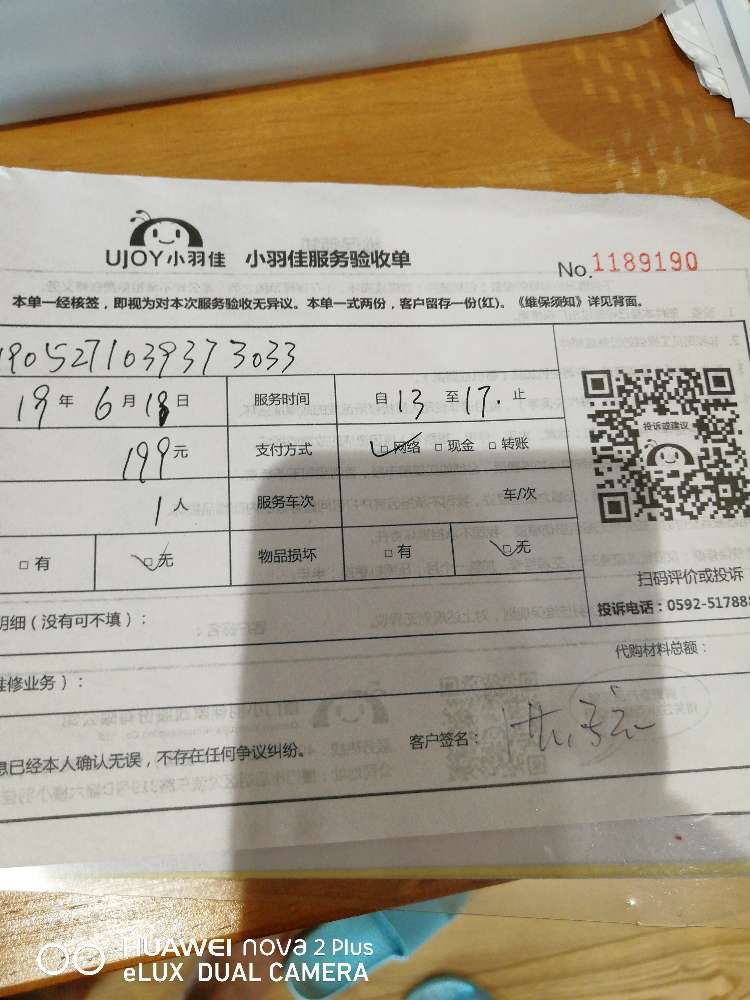 UJOY小羽佳 小羽佳服务验收单
No.1189190
本单一经核签，即视为对本次服务验收无异议。本单一式两份，客户留存一份(红)。《维保须知》详见背面。
1905271039373033
19年6月18日 服务时间 自13至17.止
投诉或建议
199元 支付方式 □网络 □现金 □转账
1人 服务车次 车/次
□有 □无 物品损坏 □有 □无
扫码评价或投诉
投诉电话：0592-51788
明细（没有可不填）：
代购材料总额：
维修业务）：
息已经本人确认无误，不存在任何争议纠纷。
客户签名：
HUAWEI nova 2 Plus
eLUX DUAL CAMERA